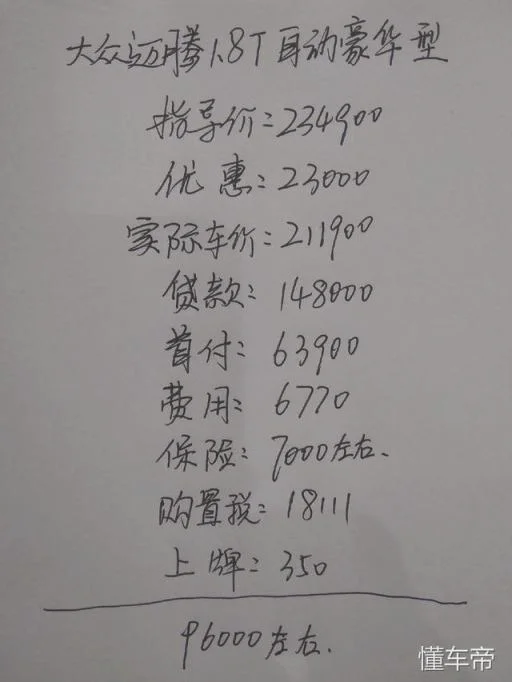 大众迈腾1.8T自动豪华型
指导价:234900
优惠:23000
实际车价:211900
贷款:148000
首付:63900
费用:6770
保险:7000左右.
购置税:18111
上牌:350
96000左右.
懂车帝